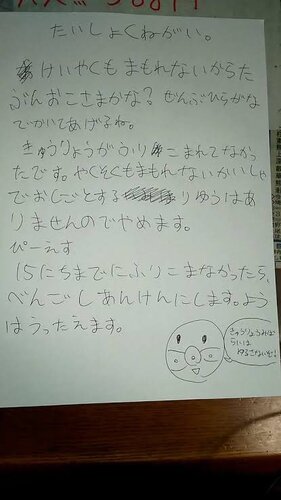 たいしょくねがい。
けいやくもまもれないからた
ぶんおこさまかな？ぜんぶひらがな
でかいてあげるね。
きゅうりょうがふりこまれてなかっ
たです。やくそくもまもれないかいしゃ
でおしごとするりゆうはあ
りませんのでやめます。
ぴーえす
15にちまでにふりこまなかったら、
べんごしあんけんにします。よう
はうったえます。
きゅうりょうみばらいは
ゆるさないぞ!